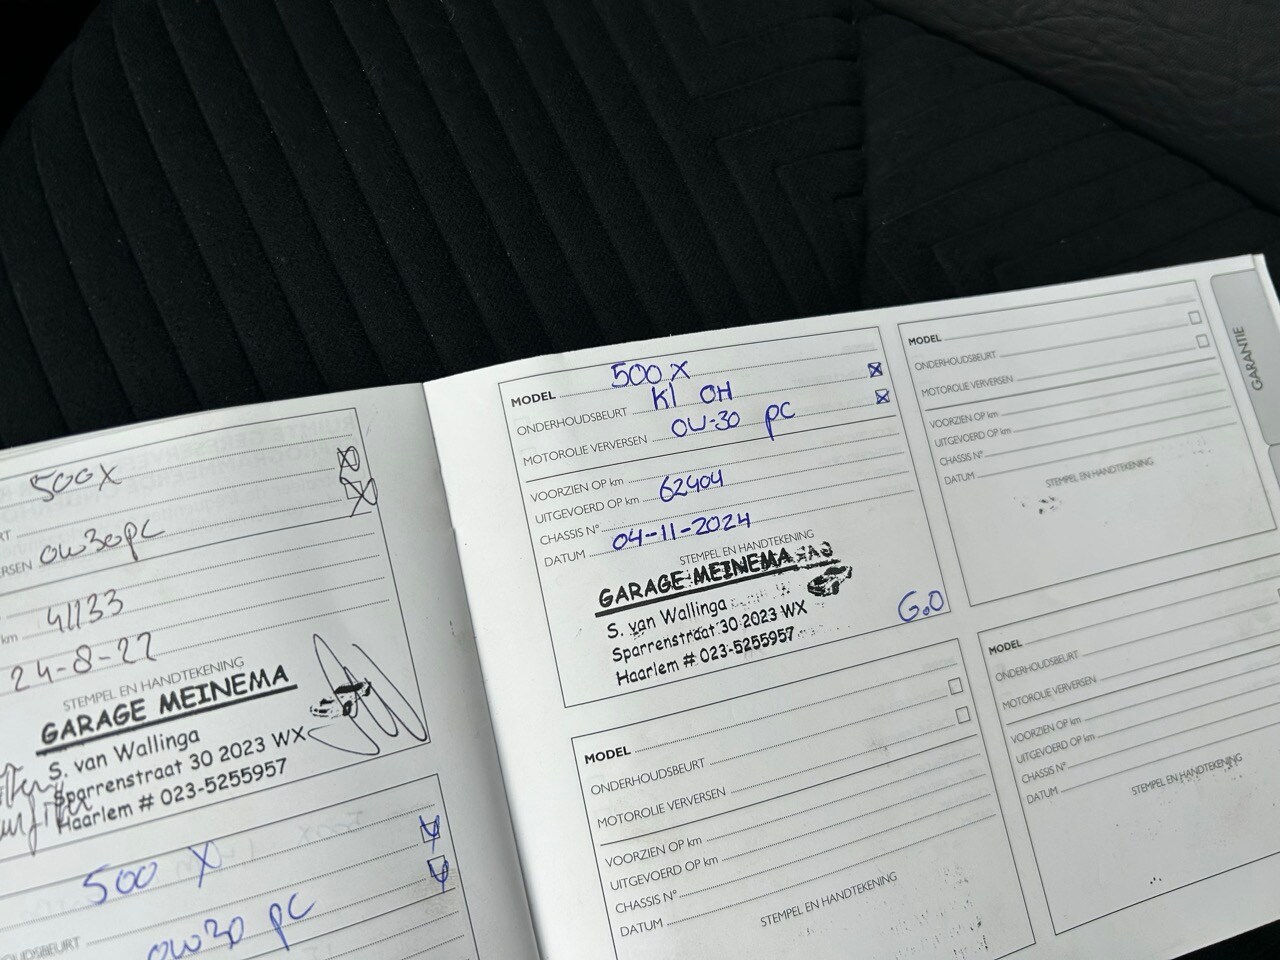 500X
0W30PC
RSEN
km
41133
24-8-22
STEMPEL EN HANDTEKENING
GARAGE MEINEMA
S. van Wallinga
Sparrenstraat 30 2023 WX
Haarlem # 023-5255957
500 X
0W30 PC
MODEL 500 X
ONDERHOUDSBEURT Kl OH
MOTOROLIE VERVERSEN 0W-30 PC
VOORZIEN OP km
UITGEVOERD OP km 62404
CHASSIS N°
DATUM 04-11-2024
STEMPEL EN HANDTEKENING
GARAGE MEINEMA
S. van Wallinga
Sparrenstraat 30 2023 WX
Haarlem # 023-5255957
G.O
MODEL
ONDERHOUDSBEURT
MOTOROLIE VERVERSEN
VOORZIEN OP km
UITGEVOERD OP km
CHASSIS N°
DATUM
STEMPEL EN HANDTEKENING
MODEL
ONDERHOUDSBEURT
MOTOROLIE VERVERSEN
VOORZIEN OP km
UITGEVOERD OP km
CHASSIS N°
DATUM
STEMPEL EN HANDTEKENING
MODEL
ONDERHOUDSBEURT
MOTOROLIE VERVERSEN
VOORZIEN OP km
UITGEVOERD OP km
CHASSIS N°
DATUM
STEMPEL EN HANDTEKENING
GARANTIE